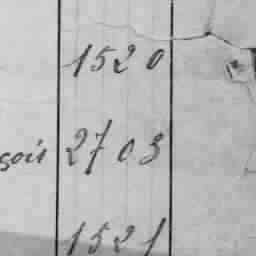 1520
çois 2703
1521